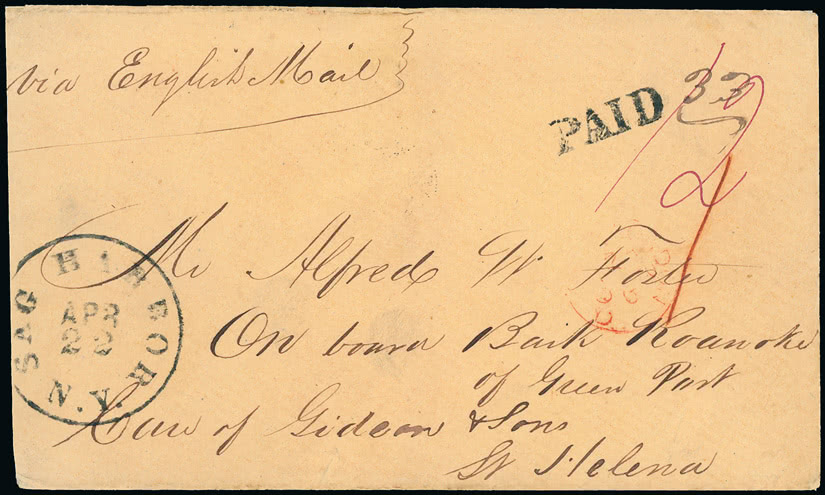 via English Mail
PAID 33
1/2
SAG HARBOR N.Y.
APR
22
Mr Alfred W Foster
On board Bark Roanoke
of Green Port
Care of Gideon & Sons
St Helena